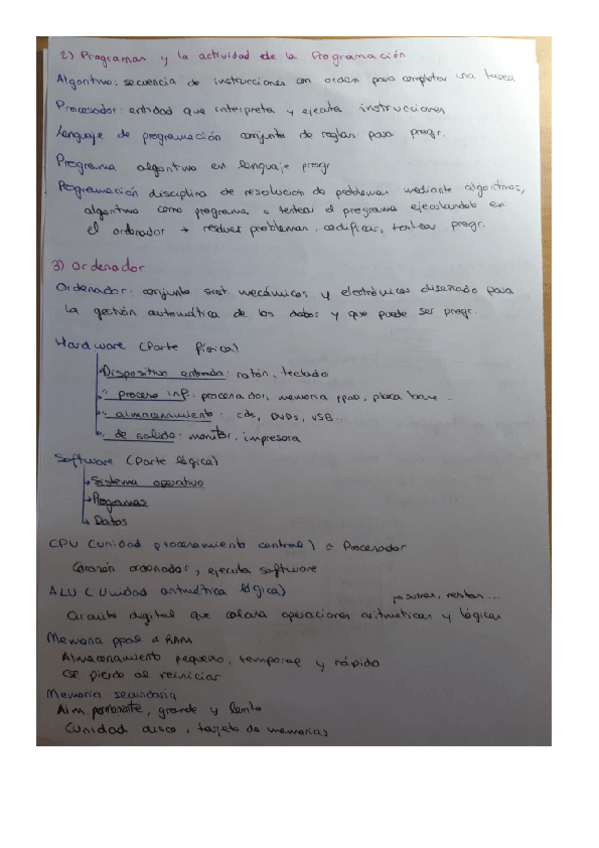 2) Programas y la actividad de la Programación
Algoritmo: secuencia de instrucciones con orden para completar una tarea
Procesador: entidad que interpreta y ejecuta instrucciones
Lenguaje de programación conjunto de reglas para progr.
Programa algoritmo en lenguaje progr
Programación disciplina de resolución de problemas mediante algoritmos,
algoritmo como programa o testear el programa ejecutandolo en
el ordenador → resolver problemas, codificar, testear progr.
3) Ordenador
Ordenador: conjunto sist. mecánicos y electrónicos diseñado para
la gestión automática de los datos y que puede ser progr.
Hardware (Parte física)
Dispositivo entrada: ratón, teclado
" proceso inf: procesador, memoria ppal, placa base...
" almacenamiento: cds, DVDs, USB...
" de salida: monitor, impresora
Software (Parte lógica)
Sistema operativo
Programas
Datos
CPU (unidad procesamiento central) o Procesador
Corazón ordenador, ejecuta software
ALU (Unidad aritmética lógica)
sumas, restas...
Circuito digital que calcula operaciones aritmeticas y lógicas
Memoria ppal o RAM
Almacenamiento pequeño, temporal y rápido
(se pierde al reiniciar
Memoria secundaria
Alm. permanente, grande y lento
(unidad disco, tarjeta de memorias)